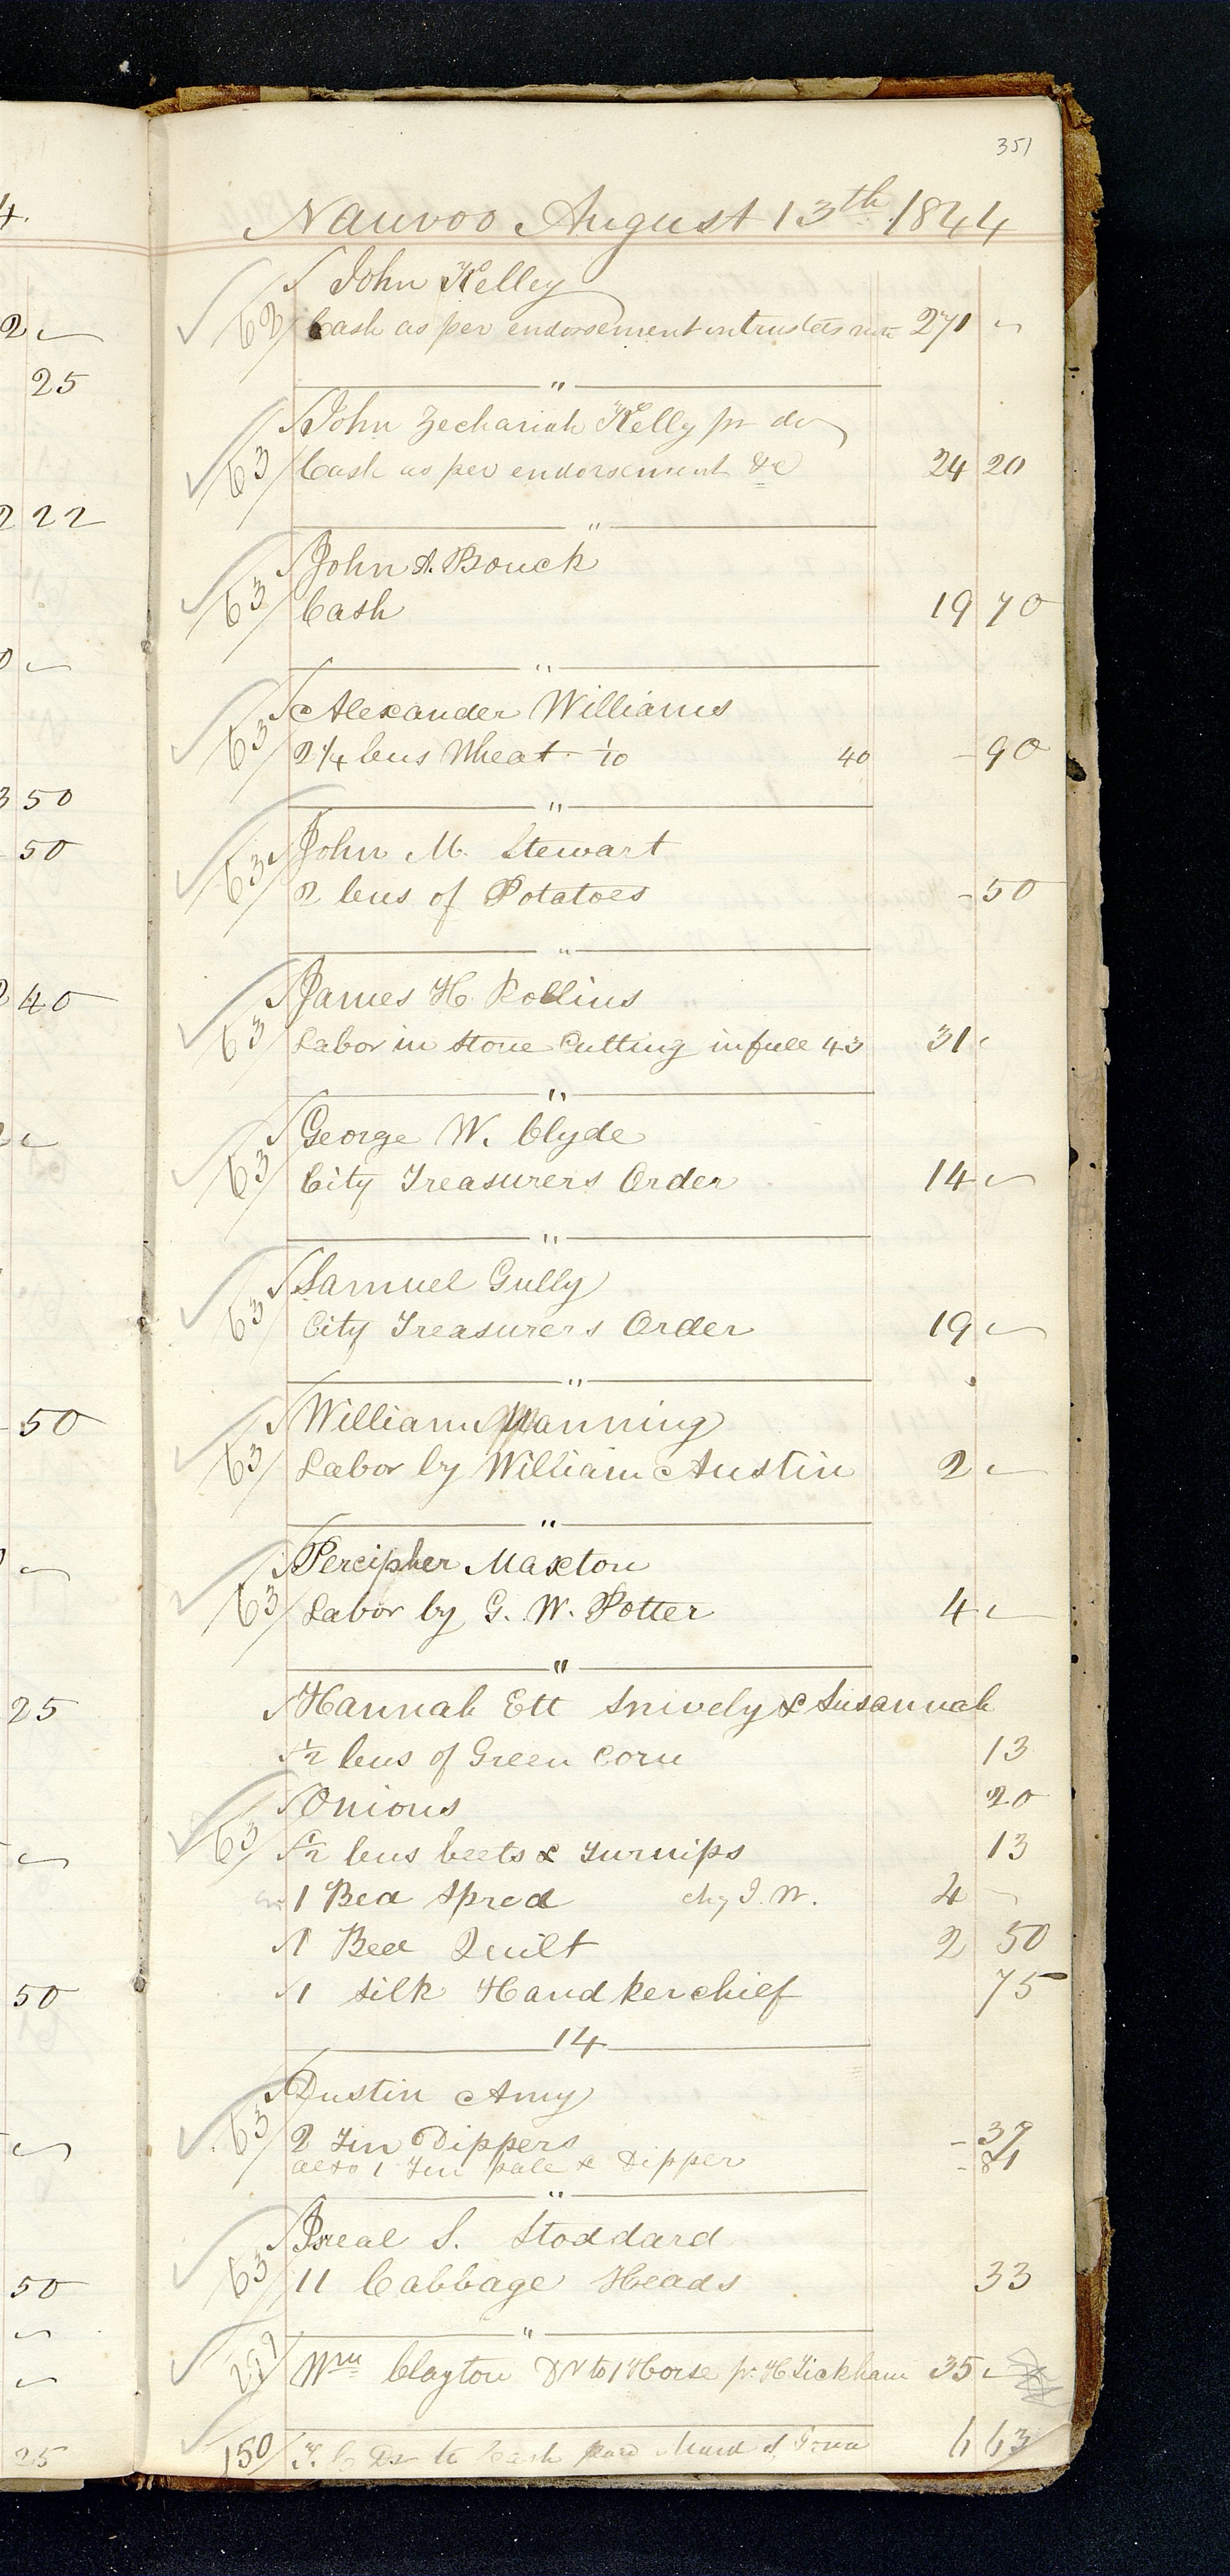 351
Nauvoo August 13th 1844
4.
John Kelley
63 Cash as per endorsement on trustees 271 ~
2 ~
25
John Zechariah Kelly pr do
63 Cash as per endorsement &c 24 20
222
John A. Bouck
63 Cash 19 70
0 ~
Alexander Williams
63 2 1/4 bus Wheat 1/10 40 - 90
3 50
John M. Stewart
- 50
63 2 bus of Potatoes - 50
2 40
James H. Rollins
63 Labor in Stone Cutting in full 43 31 ~
George W. Clyde
63 City Treasurers Order 14 ~
Samuel Gully
63 City Treasurers Order 19 ~
- 50
William Manning
63 Labor by William Austin 2 ~
Percipher Maxton
63 Labor by G. W. Potter 4 ~
25
Hannah Ett Snively & Susannah
1/2 bus of Green Corn 13
Onions 20
63 1/2 bus beets & Turnips 13
1 Bed Spred chg J. W. 4 ~
1 Bed Quilt 2 50
1 silk Handkerchief 75
50
14
Dustin Amy
63 2 Tin Dippers - 37
also 1 Tin pale & Dipper - 81
Isreal S. Stoddard
63 11 Cabbage Heads 33
50
Wm Clayton Dr to 1 Horse pr H Tickham 35 ~
150 T. C Dr to Cash paid 6 63
25